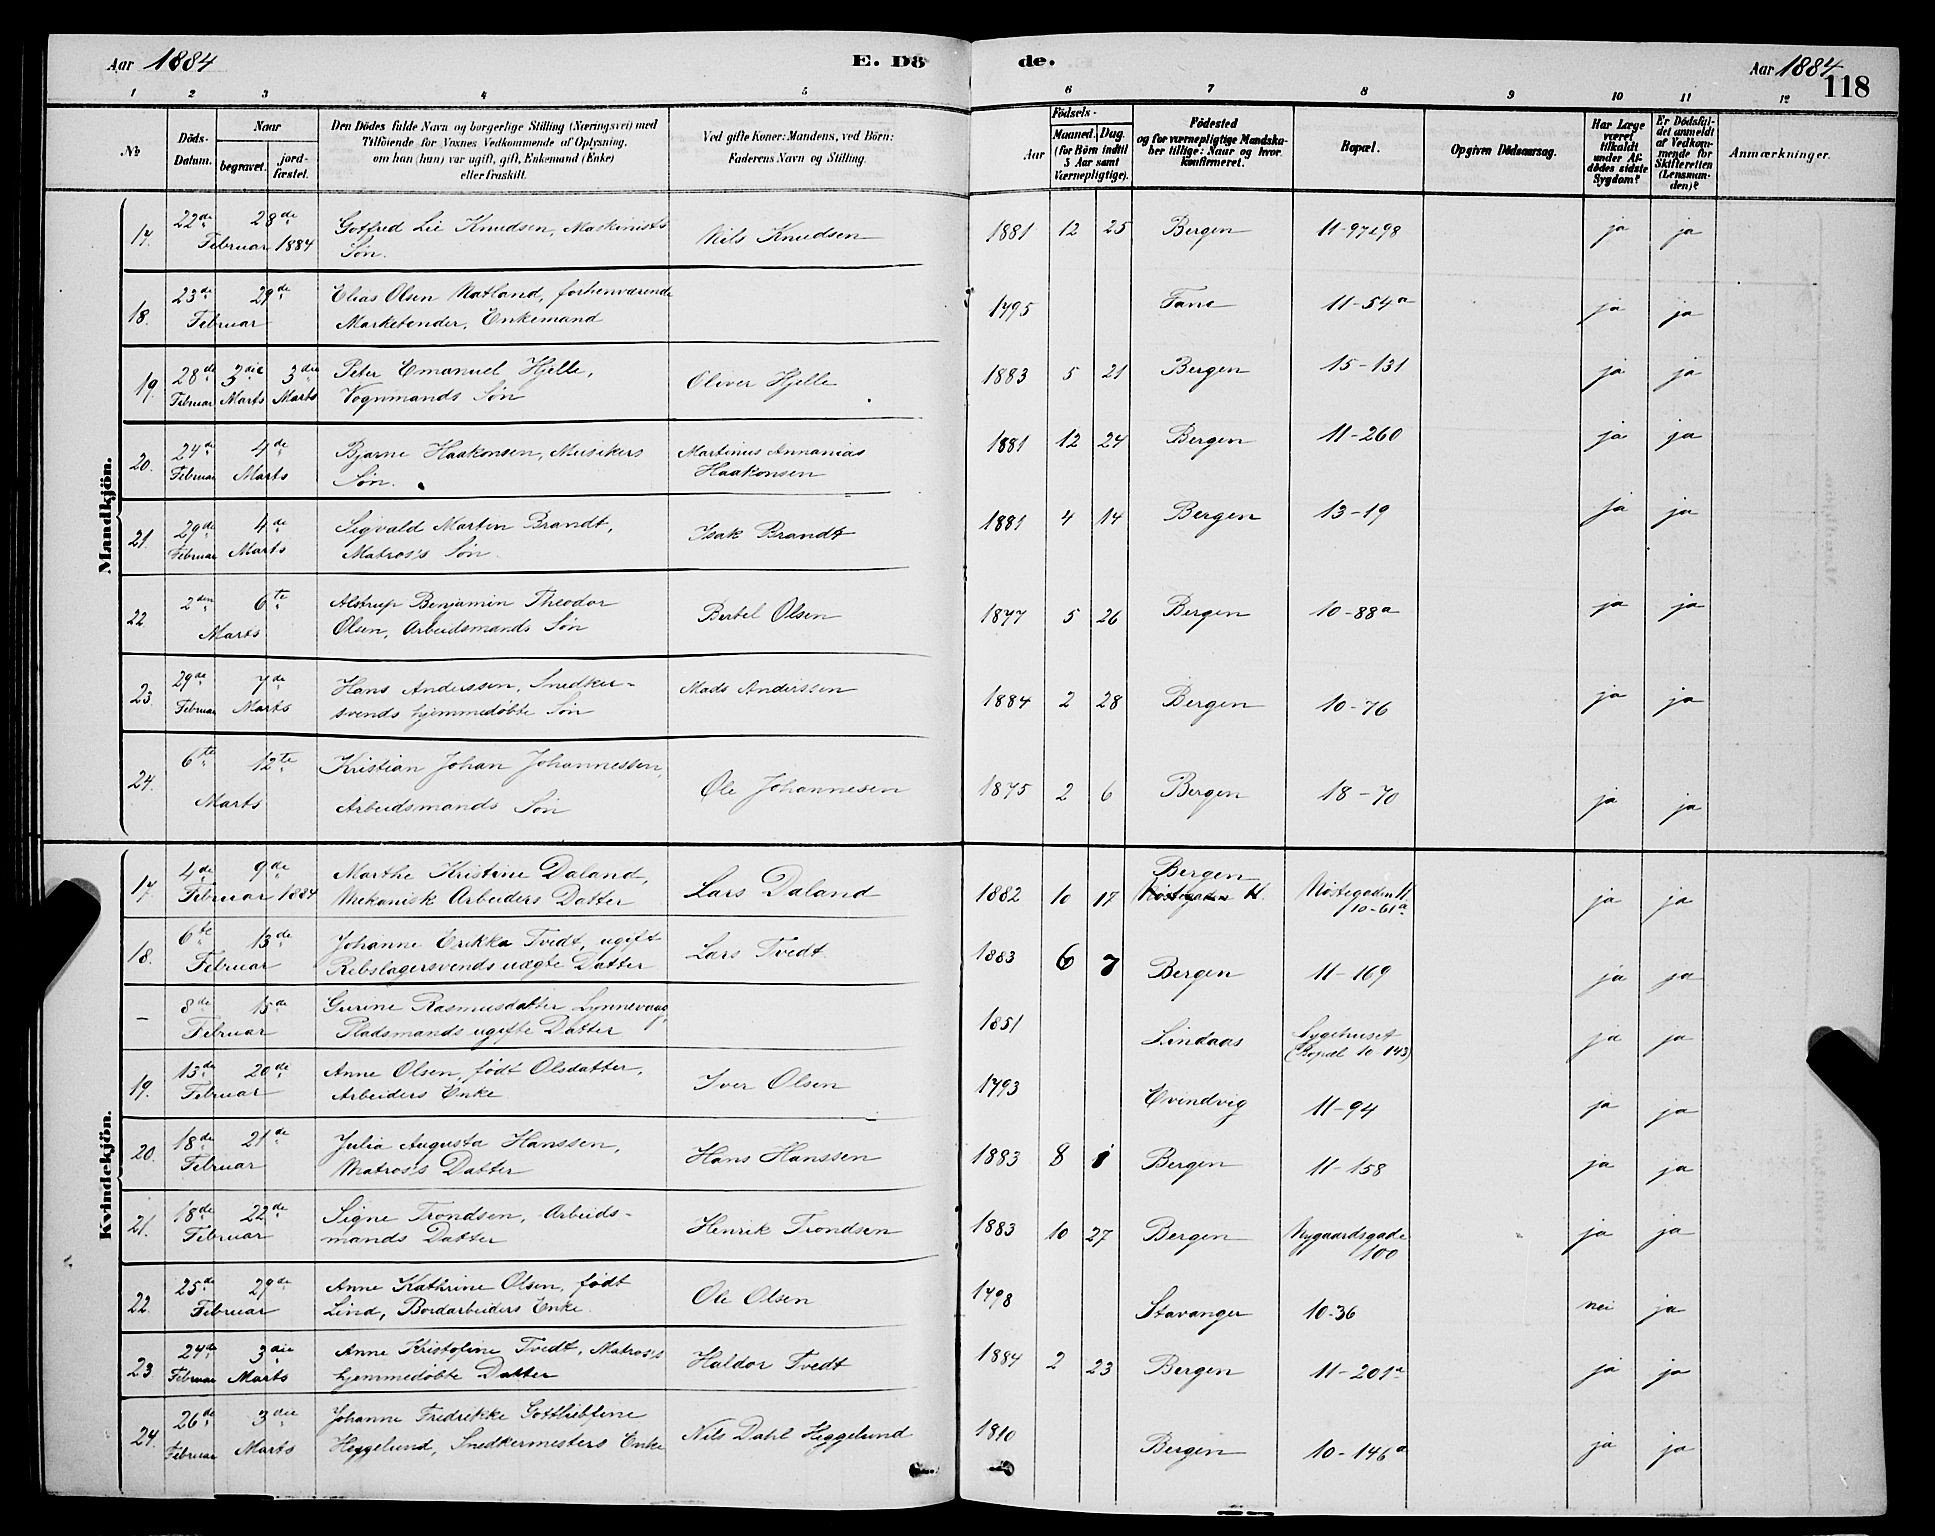 Aar 1884 E. Dö de. Aar 1884 118
1 2 3 4 5 6 7 8 9 10 11 12
№
Döds-Datum.
Naar
begravet. jordfæstet.
Den Dödes fulde Navn og borgerlige Stilling (Næringsvei) med
Tilföiende for Voxnes Vedkommende af Oplysning,
om han (hun) var ugift, gift, Enkemand (Enke)
eller fraskilt.
Ved gifte Koner: Mandens, ved Börn:
Faderens Navn og Stilling.
Födsels-
Aar Maaned. Dag.
(for Börn indtil
5 Aar samt
Værnepligtige).
Födested
og for værnepligtige Mandska-
ber tillige: Naar og hvor
konfirmeret.
Bopæl.
Opgiven Dödsaarsag.
Har Læge
været
tilkaldt
under Af-
dödes sidste
Sygdom?
Er Dödsfal-
det anmeldt
af Vedkom-
mende for
Skifteretten
(Lensman-
den)?
Anmærkninger.
Mandkjön.
17. 22de 28de Gotfred Lie Knudsen, Maskinists Niels Knudsen 1881 12 25 Bergen 11-97&98 ja ja
Februar 1884 Søn.
18. 23de 29de Elias Olsen Natland, forhenværende 1795 Fane 11-54a ja ja
Februar Marketender, Enkemand
19. 28de 3die 3die Peter Emanuel Hjelle, Oliver Hjelle 1883 5 21 Bergen 15-131 ja ja
Februar Marts Marts Vognmands Søn
20. 24de 4de Bjarne Haakonsen, Musikers Martinus Annanias 1881 12 24 Bergen 11-260 ja ja
Februar Marts Søn. Haakonsen
21. 29de 4de Sigvald Martin Brandt, Isak Brandt 1881 4 14 Bergen 13-19 ja ja
Februar Marts Matros's Søn.
22 2den 6te Alstrup Benjamin Theodor Bertel Olsen 1877 5 26 Bergen 10-88a ja ja
Marts Olsen, Arbeidsmands Søn
23. 29de 7de Hans Anderssen, Snedker- Mads Anderssen 1884 2 28 Bergen 10-76 ja ja
Februar Marts svends hjemmedøbte Søn
24. 6te 12te Kristian Johan Johannessen, Ole Johannesen 1875 2 6 Bergen 18-70 ja ja
Marts Arbeidsmands Søn
Kvindekjön.
17. 4de 9de Marthe Kristine Daland, Lars Daland 1882 10 17 Bergen Nøstegaden 11 ja ja
Februar 1884 Mekanisk Arbeiders Datter Nøstegaden 11. /10-61a
18. 6te 13de Johanne Erikka Tvedt, ugift Lars Tvedt 1883 6 7 Bergen 11-169 ja ja
Februar Rebslagersvends uægte Datter
— 8de 15de Gurine Rasmusdatter Lynnevaag, 1851 Lindaas Sygehuset ja ja
Februar Pladsmands ugifte Datter (Bopæl 10-143)
19. 13de 20de Anne Olsen, født Olsdatter, Iver Olsen 1793 Evindvig 11-94 ja ja
Februar Arbeiders Enke
20. 18de 21de Julia Augusta Hanssen, Hans Hanssen 1883 8 1 Bergen 11-158 ja ja
Februar Matros's Datter
21. 18de 22de Signe Trondsen, Arbeids- Henrik Trondsen 1883 10 27 Bergen Nygaardsgade ja ja
Februar mands Datter 100
22. 25de 29de Anne Kathrine Olsen, født Ole Olsen 1798 Stavanger 10-36 nei ja
Februar Lind, Bordarbeiders Enke.
23. 24de 3die Anne Kristofine Tvedt, Matros's Haldor Tvedt 1884 2 23 Bergen 11-201a ja ja
Februar Marts hjemmedøbte Datter
24. 26de 3die Johanne Fredrikke Gottliebfine Nils Dahl Heggelund 1810 Bergen 10-146a ja ja
Februar Marts Heggelund, Snedkermesters Enke